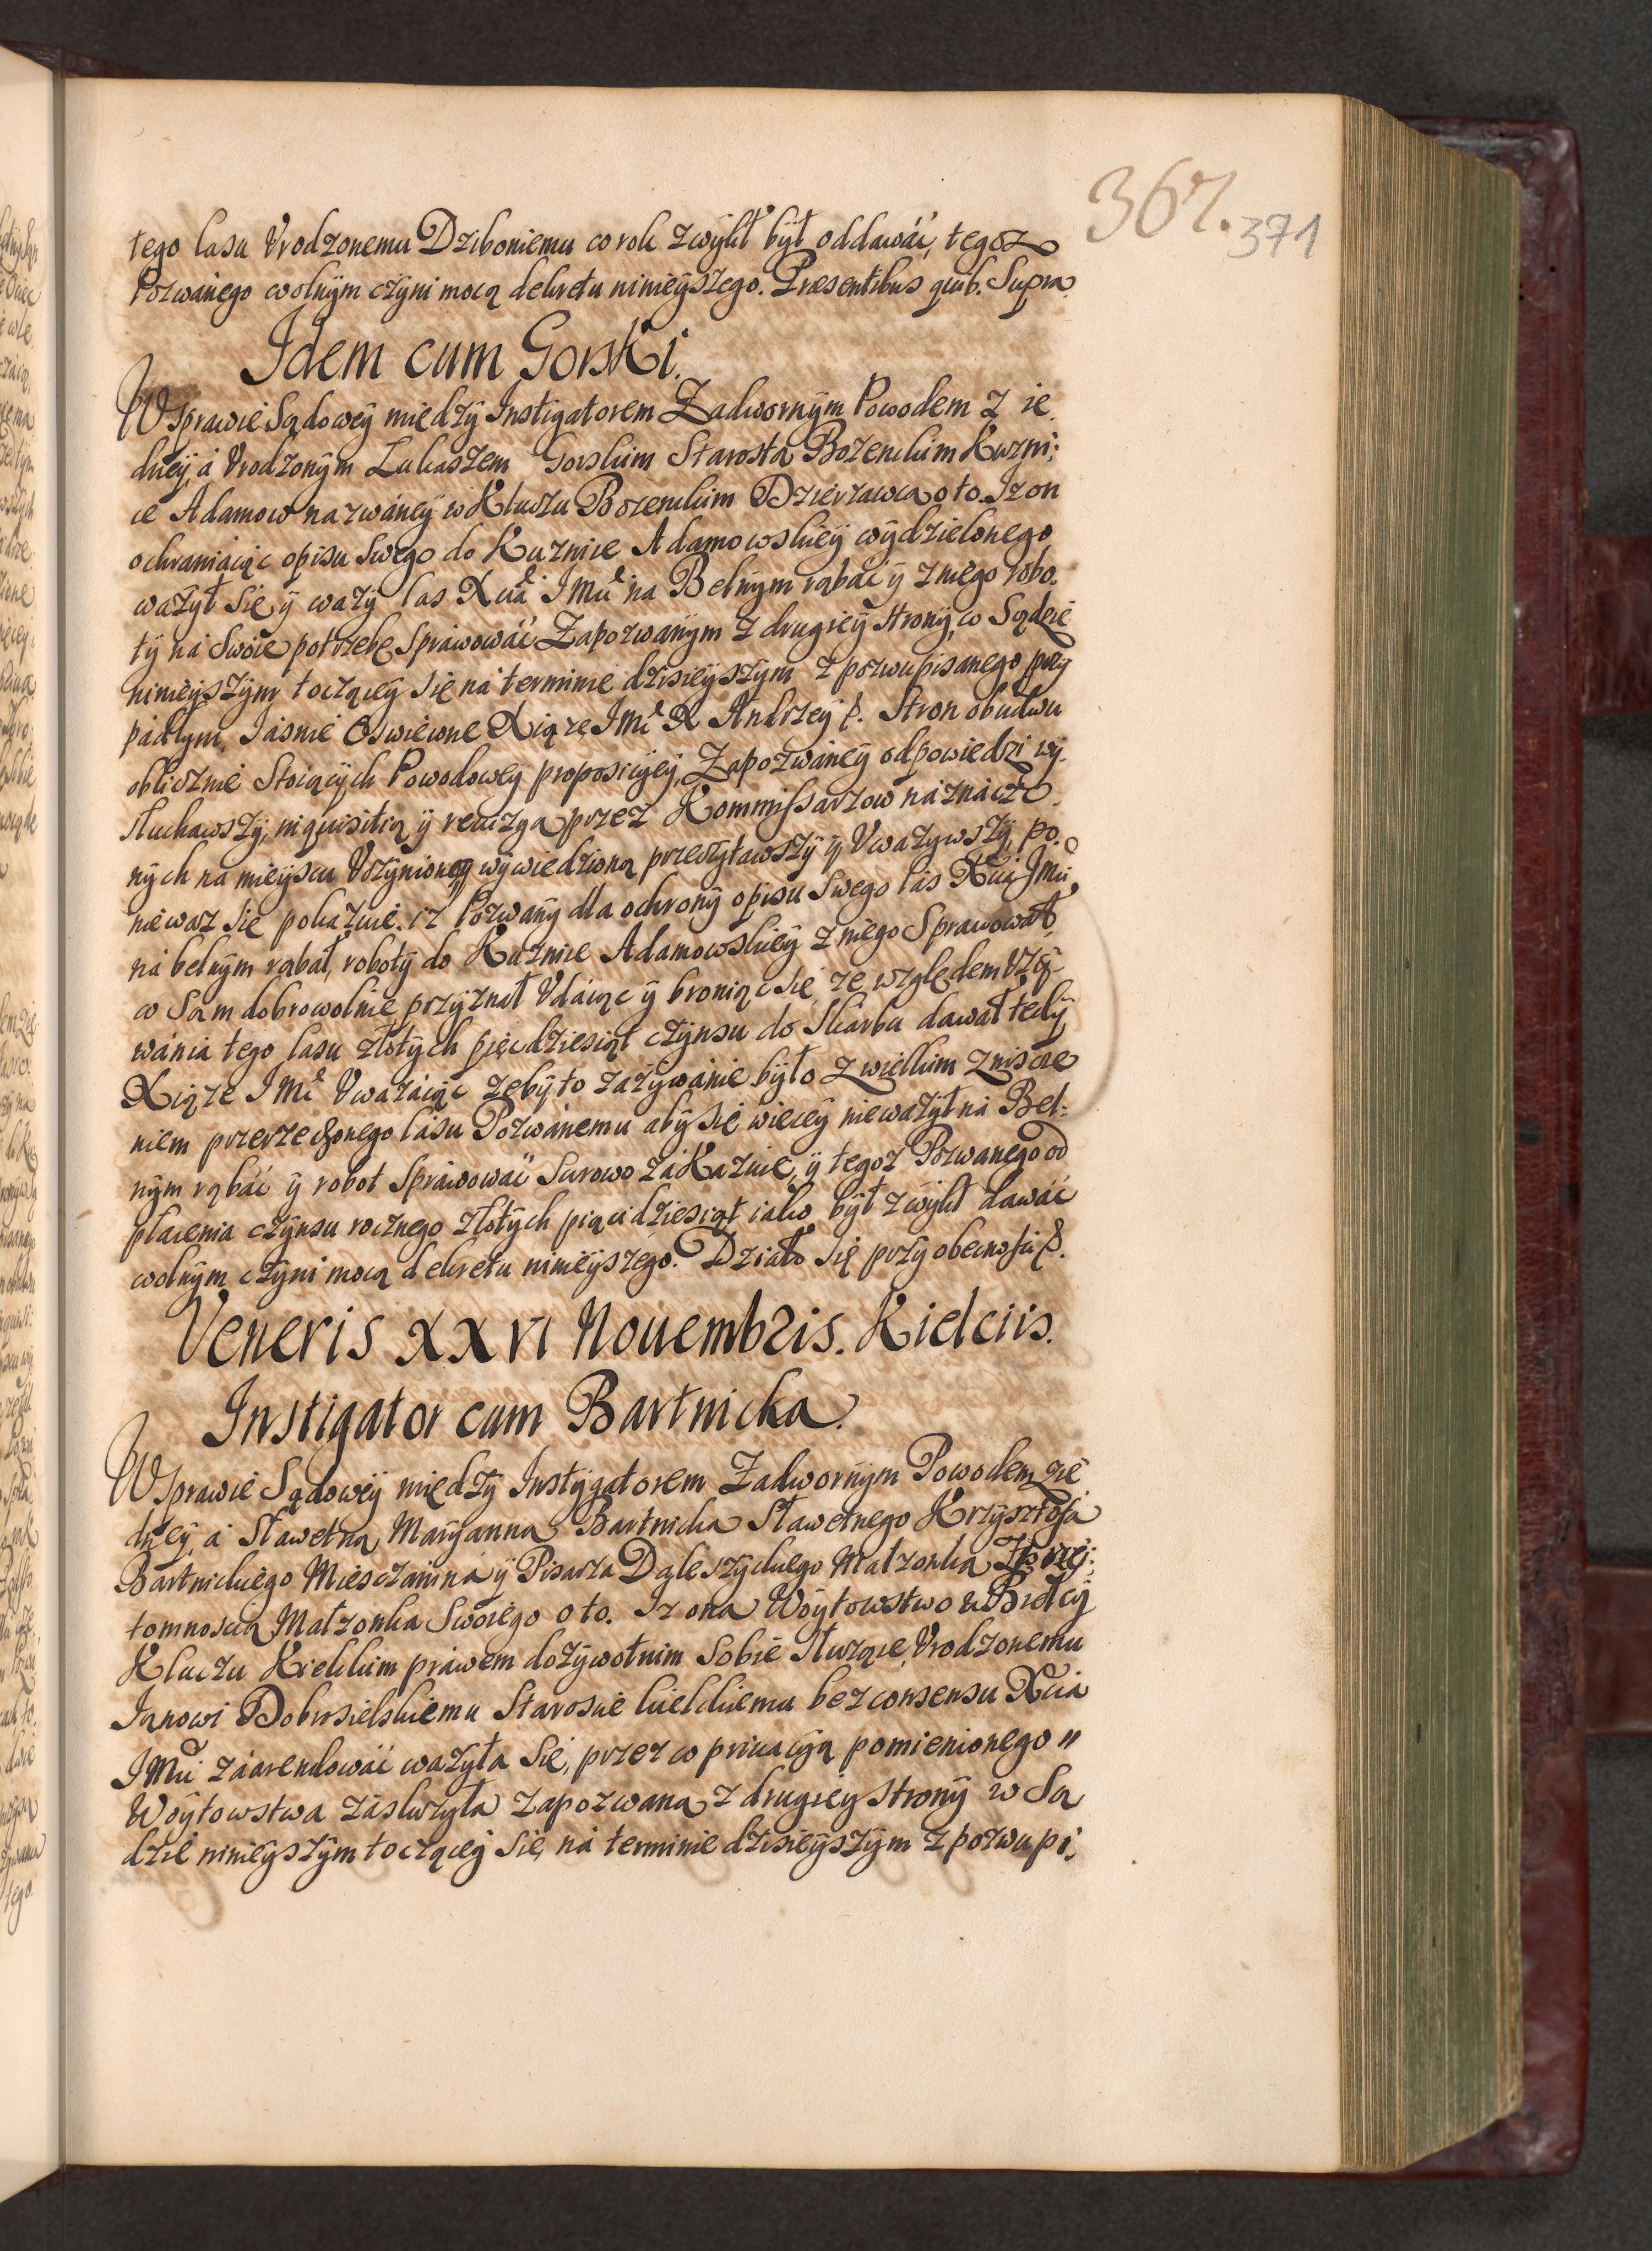 367. 371
tego lasu Vrodzonemu Dziboniemu co rok zwykł był oddawáć, tegoz
Pozwánego wolnym czyni mocą dekretu ninieyszego. Præsentibus quib. Supra.
Idem cum Gorski.
W Sprawie Sądowey między Instigatorem Zadwornym Powodem z ie
dney, á Vrodzonym Lukaszem Gorskim Starostą Bozenckim Kuzni:
ce Adamow názwáney w Kluczu Bozenckim Dzierzawcą o to. Iz on
ochraniáiąc opisu Swego do Kuznice Adamowskiey wydzielonego
ważył się y waży las Xcia IMci ná Belnym rąbáć y z niego robo.
ty ná Swoie potrzebę Spráwowáć Zapozwánym z drugiey strony, w Sądzie
ninieyszym toczącey się ná terminie dzisieyszym z pozwu pisanego przy
padłym, Iásnie Oświecone Xiąże IMć X Andrzey &. Stron obudwu
oblicznie Stoiących Powodowey proposicyey, Zapozwáney odpowiedzi wy.
słuchawszy, inquisitią y rewizyą przez Kommissarzow náznáczo.
nych ná mieyscu Vczynioney wywiedzioną przeczytawszy y Vważywszy, po.
niewaz się pokázuie. iz Pozwány dla ochrony opisu Swego lás Xcia IMci
ná belnym rąbał, roboty do Kuznice Adamowskiey z niego Sprawował,
co Sam dobrowolnie przyznał Vdáiąc y broniąc się, ze względem Vży
wánia tego lasu złotych pięcdziesiąt czynsu do Skárbu dawał tedy
Xiąże IMć Vważáiąc zeby to zażywánie było z wielkim zniscze
niem przerzeczonego lásu Pozwánemu aby się więcey nieważył ná Bel=
nym rąbáć y robot Spráwowáć Surowo zákázuie, y tegoz Pozwanego od
płacenia czynsu rocznego złotych piącidziesiąt iako był zwykł dawáć
wolnym czyni mocą dekretu ninieyszego. Działo się przy obecności &.
Veneris XXVI Nouembris. Kielciis.
Instigator cum Bartnicka.
W Sprawie Sądowey między Instygatorem Zadwornym Powodem z ie
dney, á Sławetną Maryanną Bartnicką Sławetnego Krzysztofá
Bartnickiego Miesczániná y Pisarza Daleszyckiego Małzonką z przy:
tomnoscią Małzonka Swoiego o to. Iz oná Woytowstwo w
Kluczu Kieleckim práwem dożywotnim Sobie Słuząće Vrodzonemu
Ianowi Dobrsielskiemu Staroscie kieleckiemu bez consensu Xcia
IMci záarendowáć ważyła się, przez co priuacyą pomienionego
Woytowstwa zásłuzyła zapozwaną z drugiey strony w Są
dzie ninieyszym toczącey się, ná terminie dzisieyszym z pozwu pi: